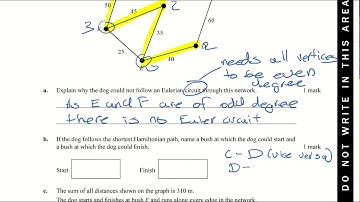 50
60
3.
2
35
25
10
2
needs all vertices
to be even
degree
a. Explain why the dog could not follow an Eulerian circuit through this network.
1 mark
As E and F are of odd degree
there is no Euler circuit
b. If the dog follows the shortest Hamiltonian path, name a bush at which the dog could start and
a bush at which the dog could finish.
1 mark
Start
Finish
C - D (vice versa)
D -
c. The sum of all distances shown on the graph is 310 m.
The dog starts and finishes at bush F and runs along every edge in the network.
DO NOT WRITE IN THIS AREA